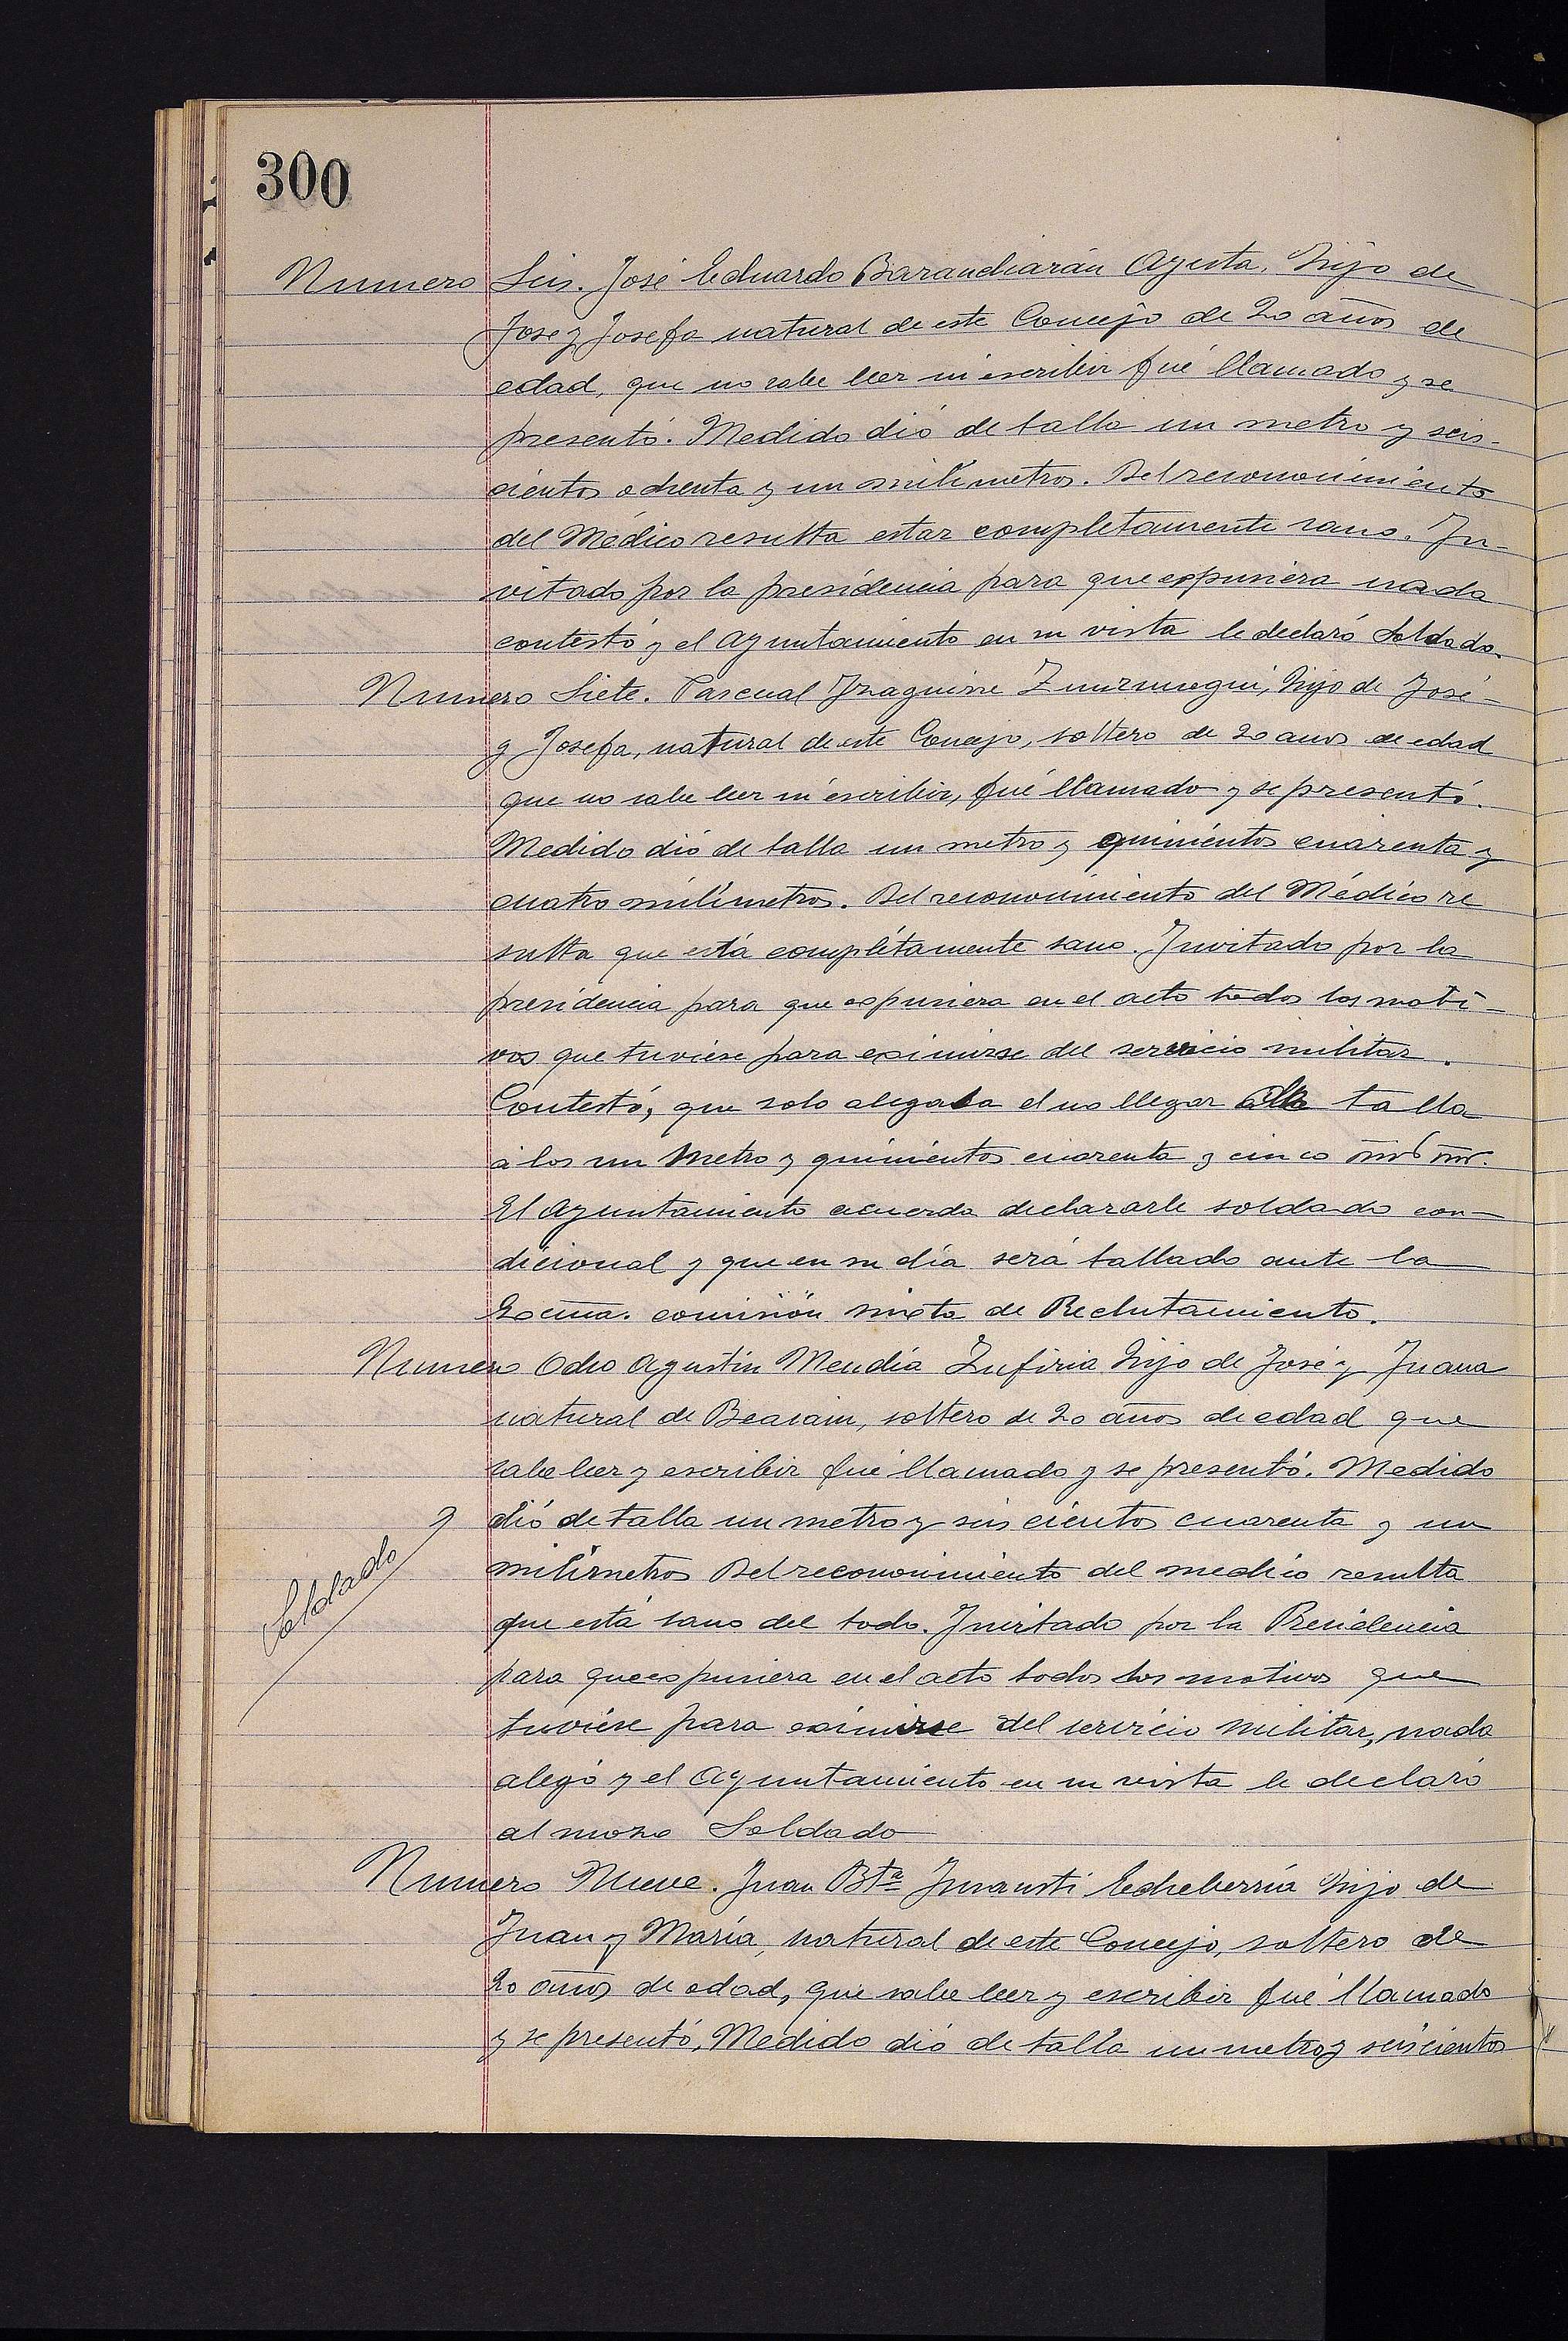 300
Numero Seis. José Eduardo Barandiarán Agusta, hijo de
Jose y Josefa natural de este Concejo de 20 años de
edad, que no sabe leer ni escribir fué llamado y se
presentó. Medido dió de talla un metro y seis-
cientos ochenta y un milímetros. Del reconocimiento
del Médico resulta estar completamente sano. In-
vitado por la presidencia para que expusiera nada
contestó y el Ayuntamiento en su vista le declaró Soldado.
Numero Siete. Pascual Izaguirre hijo de José
y Josefa, natural de este Concejo, soltero de 20 anos de edad
que no sabe leer ni escribir, fué llamado y se presentó.
Medido dió de talla un metro y quinientos cuarenta y
cuatro milímetros. Del reconocimiento del Médico re
sulta que está complétamente sano. Invitado por la
presidencia para que expusiera en el acto todos los moti-
vos que tuviese para eximirse del servicio militar.
Contestó, que solo alegaba el no llegar talla
á los un Metro y quinientos cuarenta y cinco
El Ayuntamiento acuerda declararle soldado con-
dicional y que en su día será tallado ante la
Excma. comisión mixta de Reclutamiento.
Numero Ocho Agustin Mendia Zufiria hijo de José y Juana
natural de Beasain, soltero de 20 años de edad que
sabe leer y escribir fué llamado y se presentó. Medido
dió de talla un metro y seis cientos cuarenta y un
milímetros Del reconocimiento del medico resulta
que está sano del todo. Invitado por la Presidencia
para que expusiera en el acto todos los motivos que
tuviese para eximirse del servicio militar, nada
alegó y el Ayuntamiento en su vista le declaró
al mozo Soldado
Soldado
Numero Nueve. Juan Bta Inausti Echeberria hijo de
Juan y María, natural de este Concejo, soltero de
20 años de edad, que sabe leer y escribir fué llamado
y se presentó, Medido dió de talla un metro y seiscientos